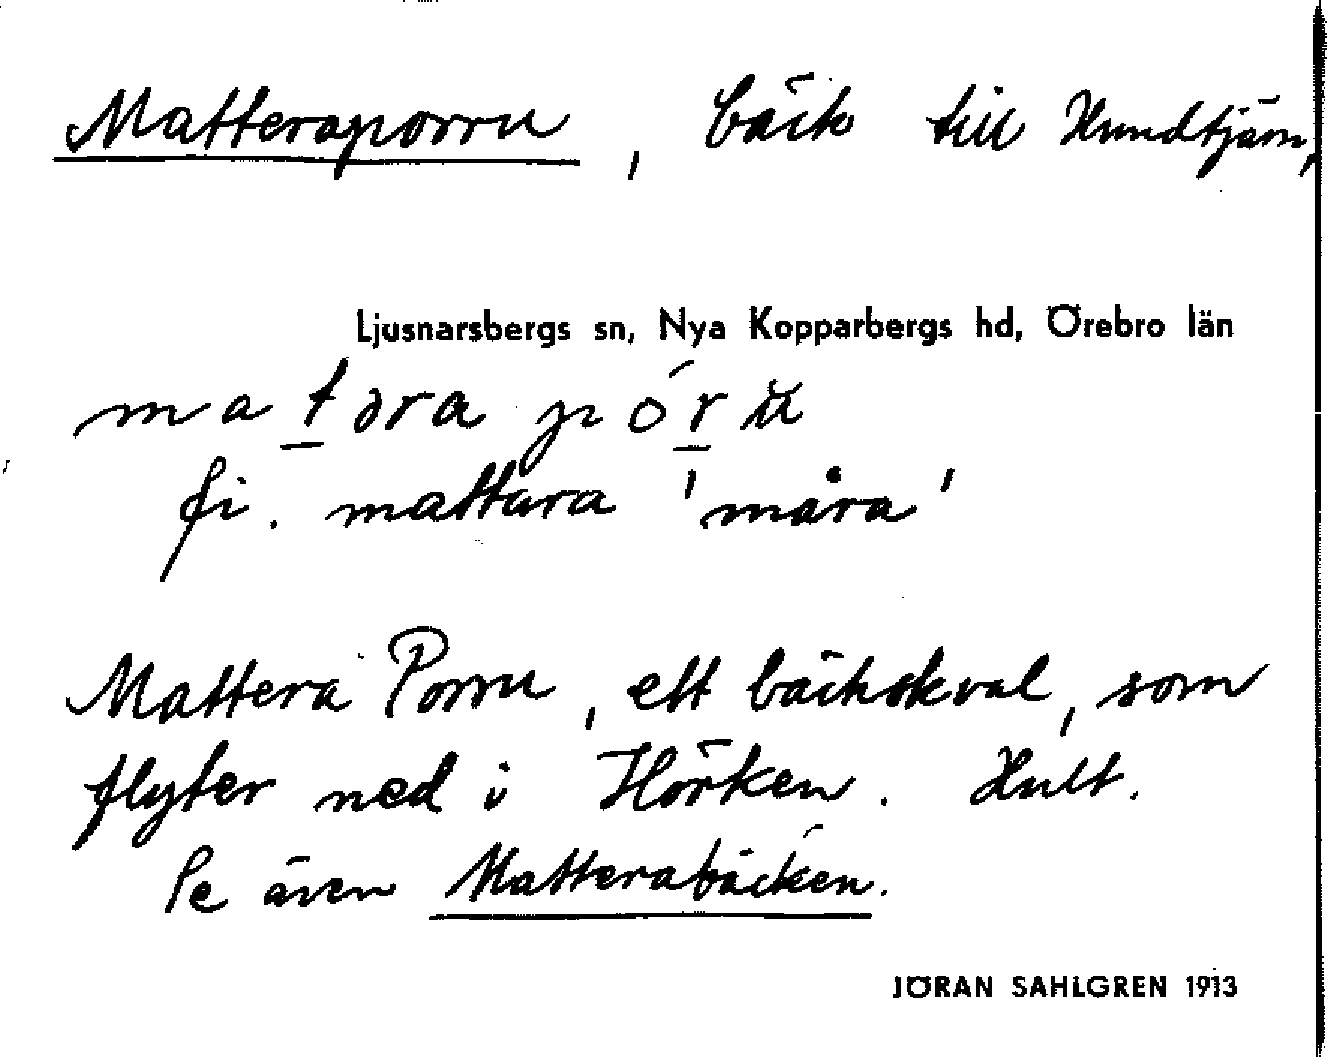 Matteraporru, bäck till Hundtjärn,
Ljusnarsbergs sn, Nya Kopparbergs hd, Örebro län
matəra póru
fi. mattara 'måra'
Mattera Porru, ett bäckskval, som
flyter ned i Hörken. Hult.
Se även Matterabäcken.
JÖRAN SAHLGREN 1913